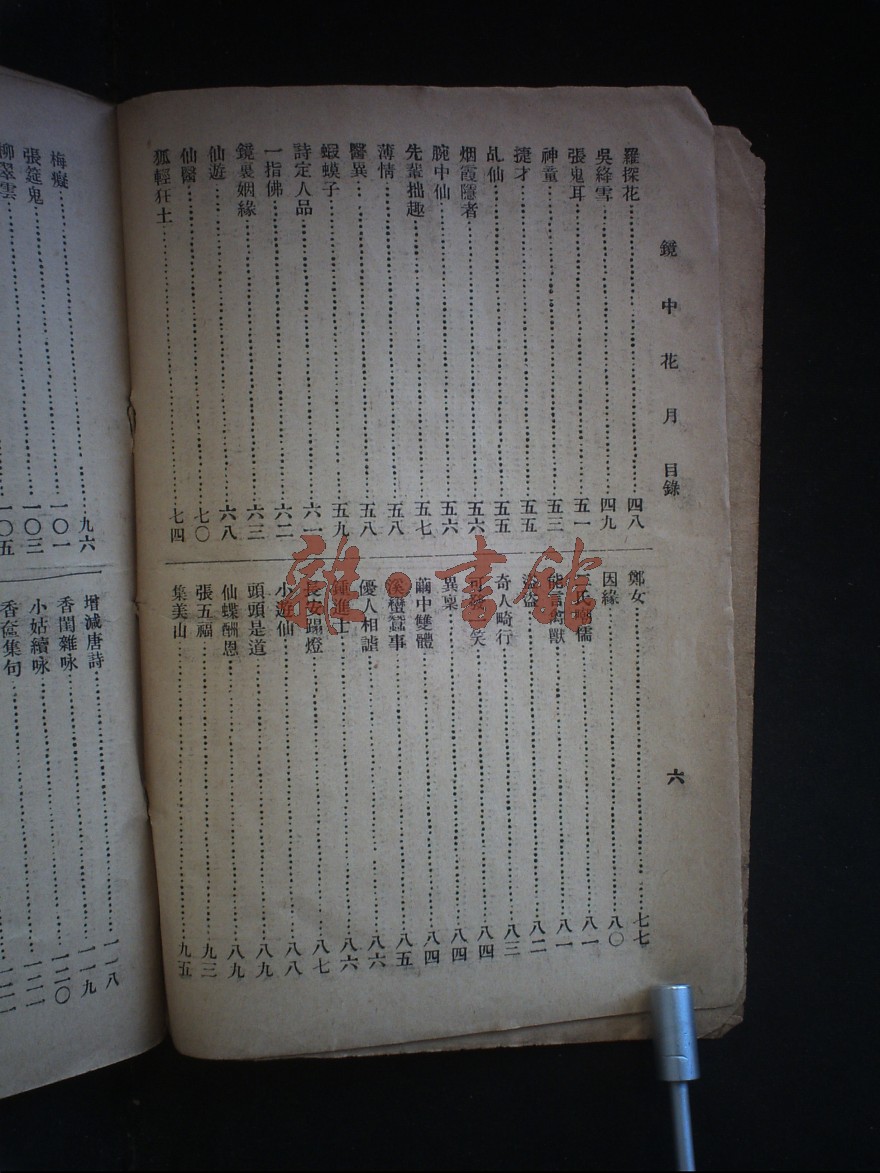 鏡中花月目錄
六
羅探花 四八
吳絳雪 四九
張鬼耳 五一
神童 五三
捷才 五五
乩仙 五五
烟霞隱者 五六
腕中仙 五六
先輩拙趣 五七
薄情 五八
醫異 五八
蝦蟆子 五九
詩定人品 六一
一指佛 六二
鏡裏姻緣 六三
仙遊 六八
仙醫 七〇
狐輕狂士 七四
鄭女 七七
因緣 八〇
二氏嘲儒 八一
能言禽獸 八一
盜 八二
奇人畸行 八三
可發一笑 八四
異稟 八四
繭中雙體 八四
溪蠻蠶事 八五
優人相謔 八六
鍾進士 八六
長安蹋燈 八七
小遊仙 八八
頭頭是道 八九
仙蝶酬恩 八九
張五福 九三
集美山 九五
梅癡 九六
張筵鬼 一〇一
柳翠雲 一〇三
一〇五
增減唐詩 一一八
香閨雜咏 一一九
小姑續咏 一二〇
香奩集句 一二一
雜·書館